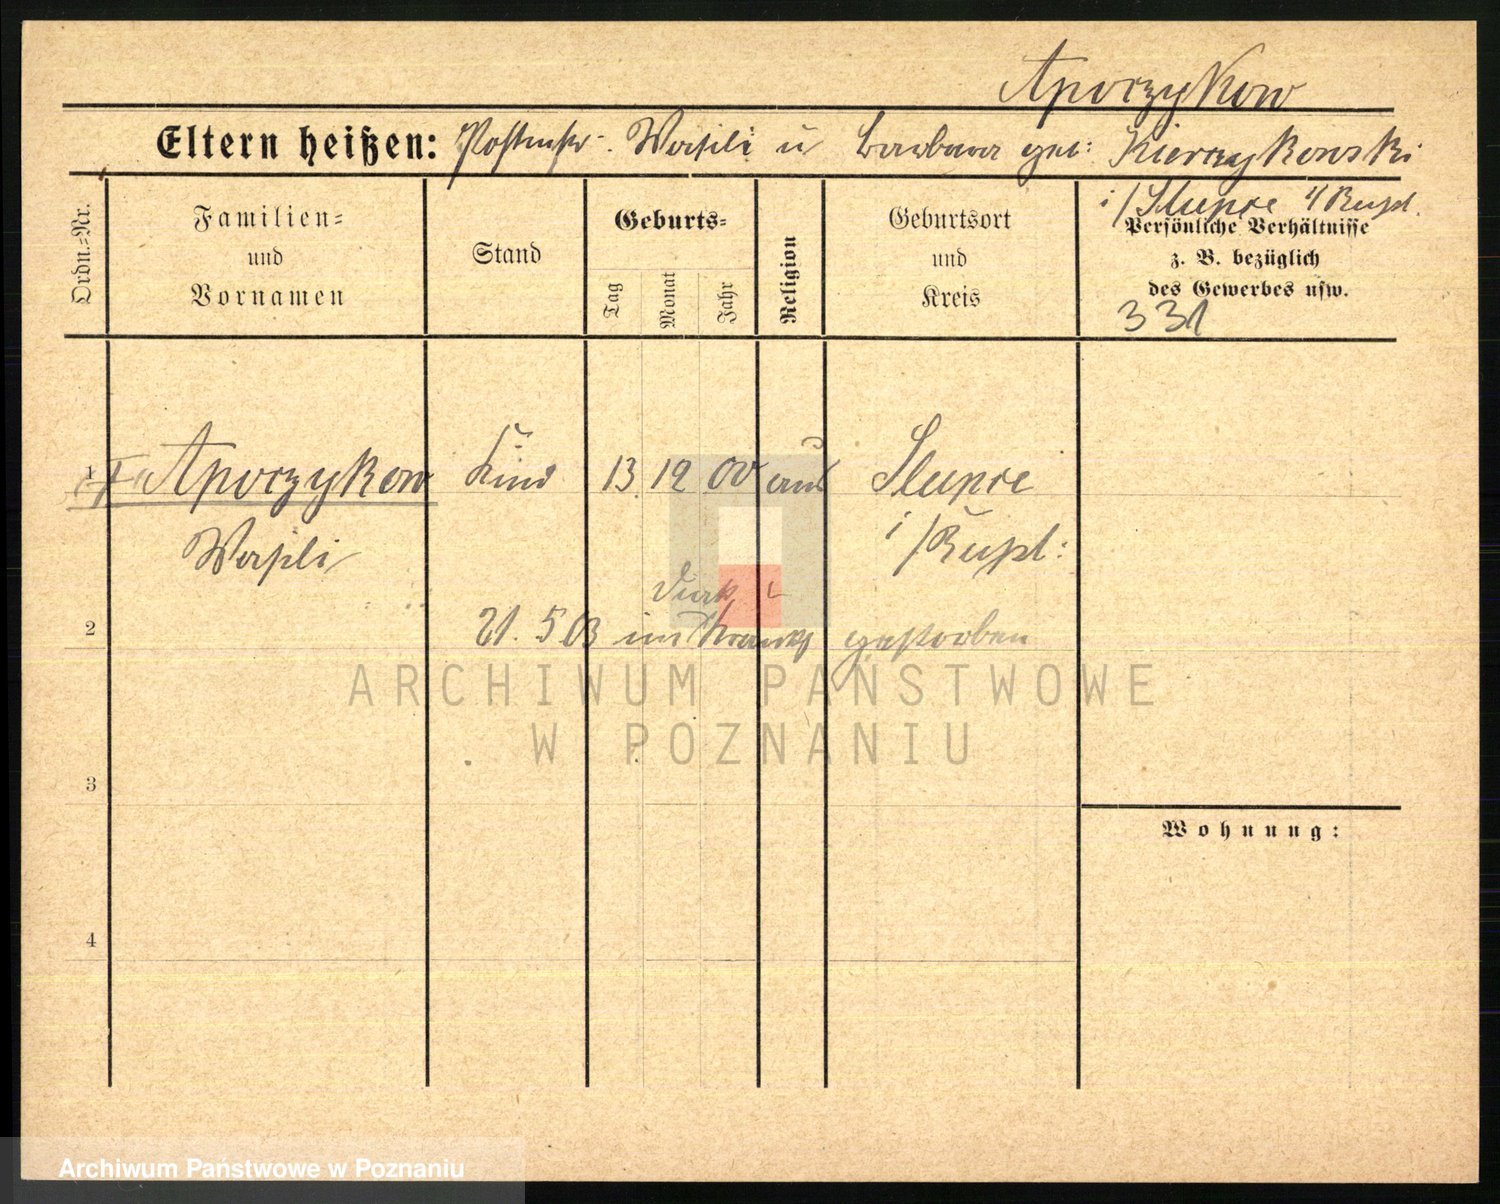 Aporzykow
Eltern heißen: Wasili u Barbara geb: Kierzykowski
i/Slupce i/Rußl.
Ordn.=Nr.
Familien=
und
Vornamen
Stand
Geburts=
Tag
Monat
Jahr
Religion
Geburtsort
und
Kreis
Persönliche Verhältnisse
z. B. bezüglich
des Gewerbes usw.
331
1 Aporzykow Kind 13 12 00 Slupce
Wasili i/Rußl:
2 21. 5 03 im gestorben
ARCHIWUM PAŃSTWOWE
W POZNANIU
3
Wohnung:
4
Archiwum Państwowe w Poznaniu